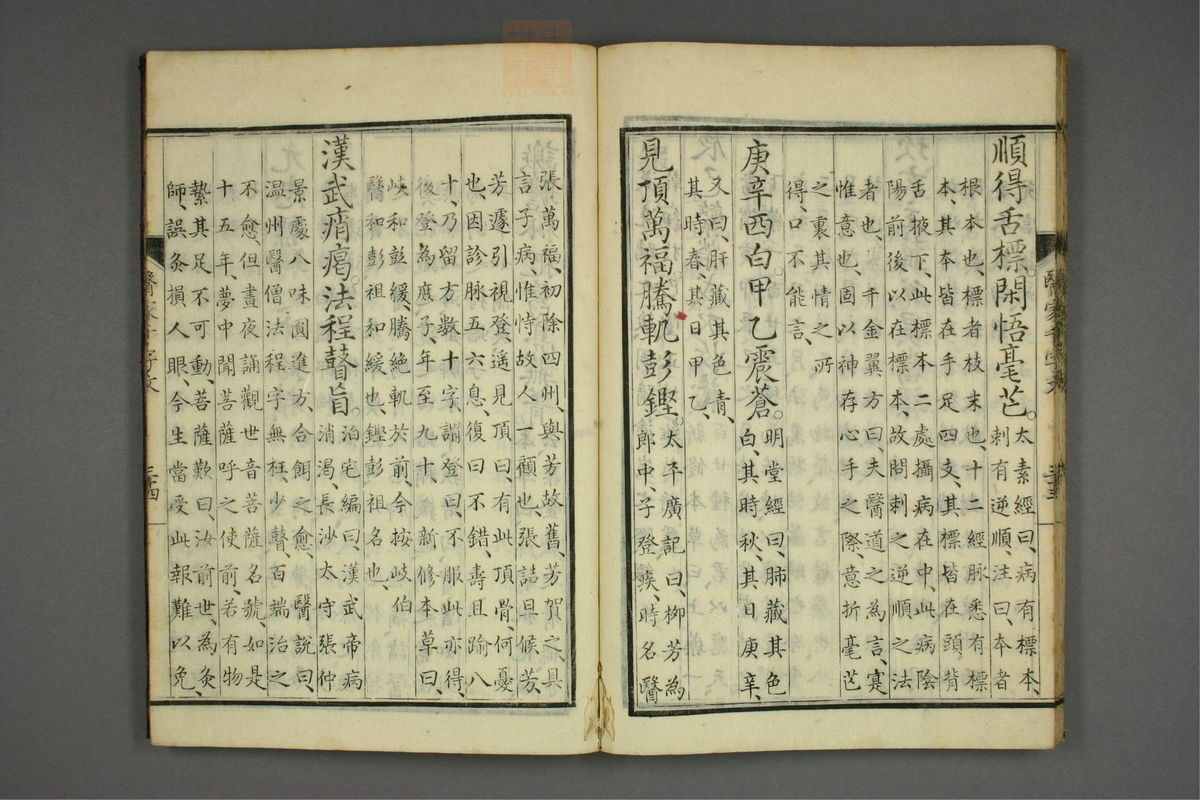 順得舌標。閑悟毫芒。太素經曰、病有標本、
刺有逆順、注曰、本者
根本也、標者枝末也、十二經脉悉有標
本、其本皆在手足四支、其標皆在頭背
舌掖下、此標本二處攝病在中、此病陰
陽前後以在標本、故問刺之逆順之法
者也、千金翼方曰、夫醫道之為言、寔
惟意也、固以神存心手之際、意折毫芒
之裏、其情之所
得、口不能言、
庚辛西白。甲乙震蒼。明堂經曰、肺藏其色
白、其時秋、其日庚辛、
又曰、肝藏其色青、
其時春、其日甲乙、
見頂萬福。騰軌彭鏗。太平廣記曰、柳芳為
郎中、子登疾、時名醫
張萬福、初除四州、與芳故舊、芳賀之、具
言子病、惟恃故人一顧也、張詰旦候芳、
芳遽引視登、遥見頂曰、有此頂骨、何憂
也、因診脉五六息、復曰、不錯、壽且踰八
十、乃留方數十字、謂登曰、不服此亦得
後登為庶子、年至九十、新修本草曰、
岐和彭緩騰絶軌於前、今按岐伯
醫和彭祖和緩也、鏗彭祖名也、
漢武痟𤸎。法程鼓旨。泊宅編曰、漢武帝病
消渇、長沙太守張仲
景處八味圓進方、合餌之愈、醫說曰、
温州醫僧法程字無枉、少瞽百端治之
不愈、但晝夜誦觀世音菩薩名號、如是
十五年、夢中聞菩薩呼之使前、若有物
縶其足不可動、菩薩歎曰、汝前世為灸
師、誤灸損人眼、今生當受此報難以免、
醫家千字文
三十三
醫家千字文
三十四